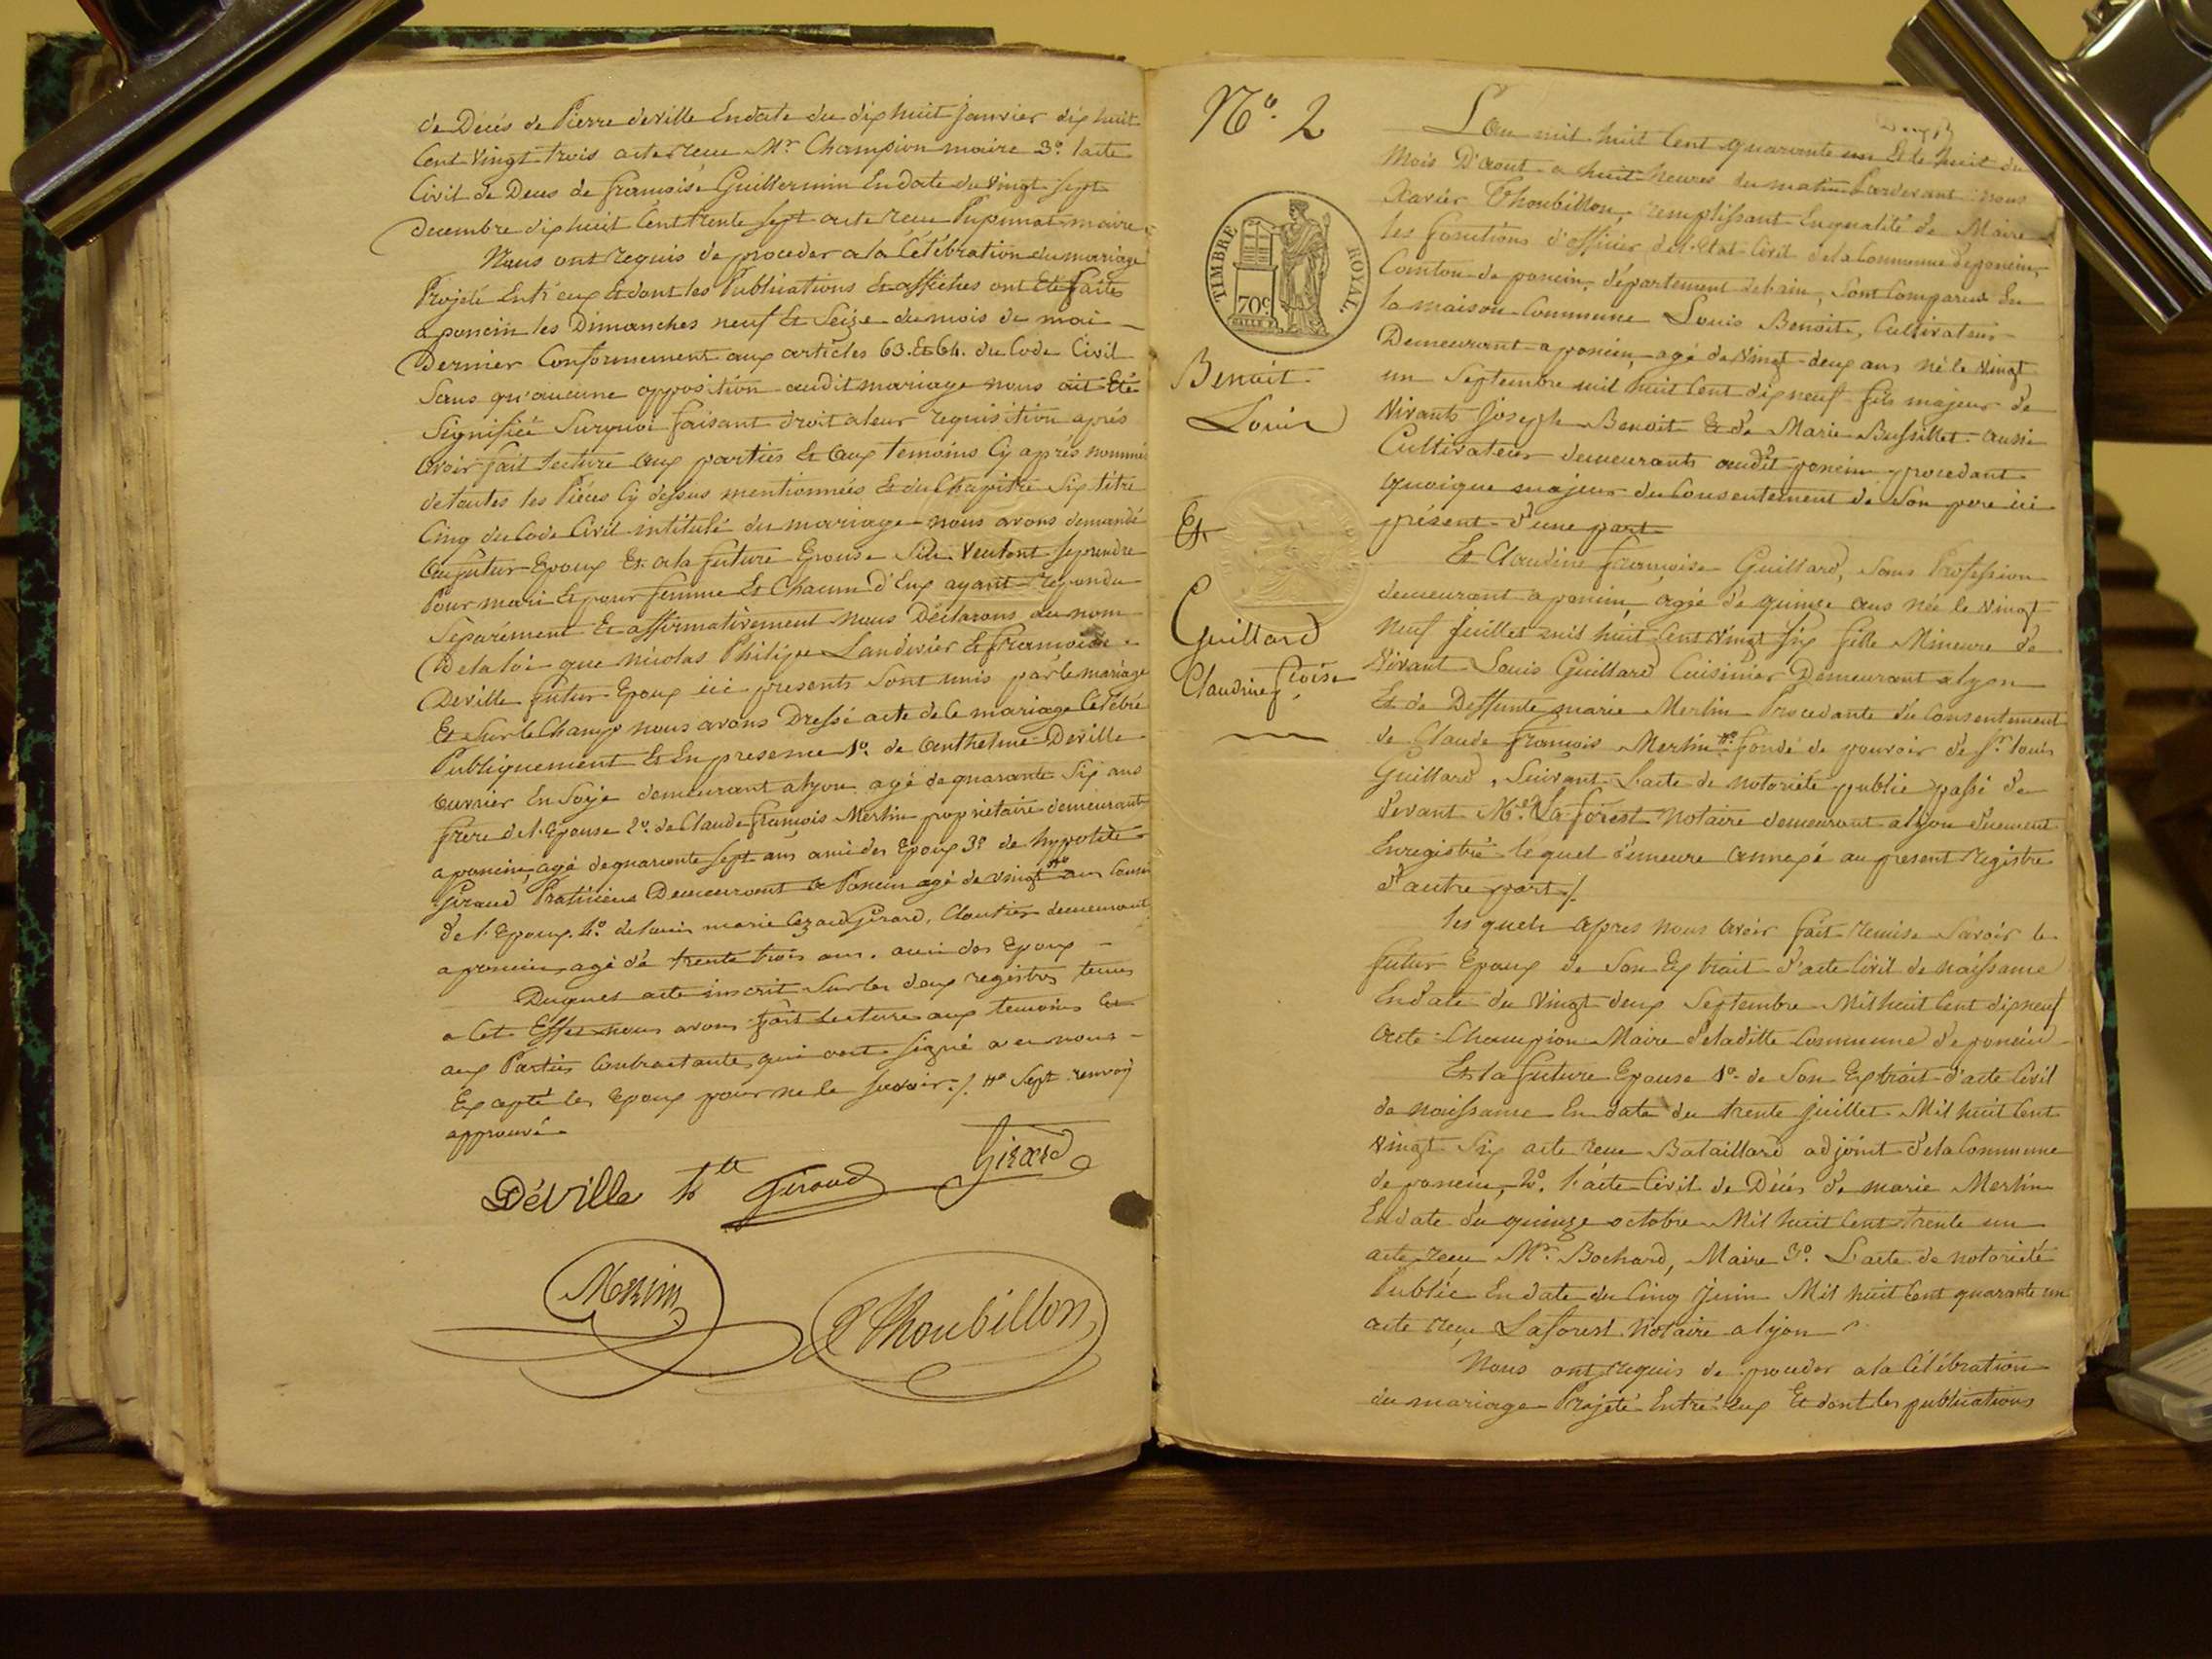 de Décés de Pierre deville En date du dix huit janvier dix huit
Cent Vingt trois acte recu Mr Champion maire 3º. lacte
Civil de Deces de françoise Guillermin En date du Vingt Sept
decembre dix huit Cent trente Sept acte recu Pupunat maire
Nous ont requis de proceder a la Célébration du mariage
Projeté Entr'eux Et dont les Publications Et affiches ont Eté faites
a poncin les Dimanches neuf Et Seize du mois de mai
Dernier Conformement aux articles 63. Et 64. du Code Civil
Sans qu'aucune opposition audit mariage nous ait Eté
Signifiée Surquoi faisant droit a leur requisition aprés
avoir fait lecture aux parties Et aux temoins Cy aprés nommés
de toutes les Piéces Cy dessus mentionnées Et du Chapitre Six titre
Cinq du Code Civil intitulé du mariage nous avons demandé
au futur Epoux Et a la future Epouse Sils Veulent se prendre
Pour mari Et pour femme Et Chacun d'Eux ayant repondu
Separément Et affirmativement nous Déclarons au nom
De la loi que nicolas Philippe Landivier Et françoise
Deville futur Epoux ici presents Sont unis par le mariage
Et Sur le Champ nous avons Dressé acte de Ce mariage Célébré
Publiquement Et En presence 1º. de anthelme Deville
Ouvrier En Soye demeurant a lyon agé de quarante Six ans
frere de l'Epouse 2º. de Claude françois Merlin propriétaire demeurant
a poncin agé de quarante Sept ans ami des Epoux 3º. de hypolite
Giraud Praticien Demeurant a Poncin agé de vingt ans Cousin
de l'Epoux. 4º. de louis marie Girard, Cloutier demeurant
a poncin agé de trente trois ans. ami des Epoux
Duquel acte inscrit Sur les deux registres tenus
a Cet Effet nous avons fait lecture aux temoins Et
aux Parties Contractantes qui ont signé avec nous
Excepté les Epoux pour ne le Savoir ./. Sept renvoy
approuvé
Déville Giraud Girard
Merlin
Thoubillon
Nº. 2
TIMBRE ROYAL.
70c.
Benoit
Louis
Et
Guillard
Claudine foise
L'an mil huit Cent quarante un Et le huit du
Mois D'aout a huit heures du matin Pardevant nous
Xavier Thoubillon, remplissant En qualité de Maire
les fonctions d'officier de l'Etat-Civil de la Commune de poncin,
Canton de poncin, département de l'ain, Sont Comparus En
la maison Commune Louis Benoit, Cultivateur
Demeurant a poncin, agé de Vingt deux ans né le Vingt
un Septembre mil huit Cent dix neuf fils majeur de
Vivants Joseph Benoit Et de Marie Bussillet aussi
Cultivateurs demeurants audit poncin procedant
quoique majeur du Consentement de Son pere ici
présent d'une part
Et Claudine françoise Guillard, Sans Profession
demeurant a poncin agée de quinze ans née le Vingt
Neuf Juillet mil huit Cent Vingt Six fille Mineure de
Vivant Louis Guillard Cuisinier Demeurant a lyon
Et de Deffunte marie Merlin Procedante du Consentement
de Claude françois Merlin fondé de pouvoir de Sr. louis
Guillard, Suivant l'acte de notorieté public passé de
devant Me. Laforest Notaire demeurant a lyon duement
Enregistré lequel demeure annexé au present registre
d'autre part ./.
lesquels apres nous avoir fait remise Savoir le
futur Epoux de Son Extrait d'acte Civil de naissance
En date du Vingt deux Septembre Mil huit Cent dix neuf
acte Champion Maire de la ditte Commune de poncin
Et la future Epouse 1º. de Son Extrait d'acte Civil
de naissance En date du trente juillet Mil huit Cent
Vingt Six acte recu Bataillard adjoint de la Commune
de poncin, 2º. l'acte Civil de Décés de marie Merlin
En date du quinze octobre Mil huit Cent trente un
acte recu Mr. Bochard, Maire 3º. L'acte de notorieté
Public En date du Cinq Juin Mil huit Cent quarante un
acte recu Laforest Notaire a lyon
Nous ont requis de proceder a la Célébration
du mariage Projeté Entre'Eux Et dont les publications